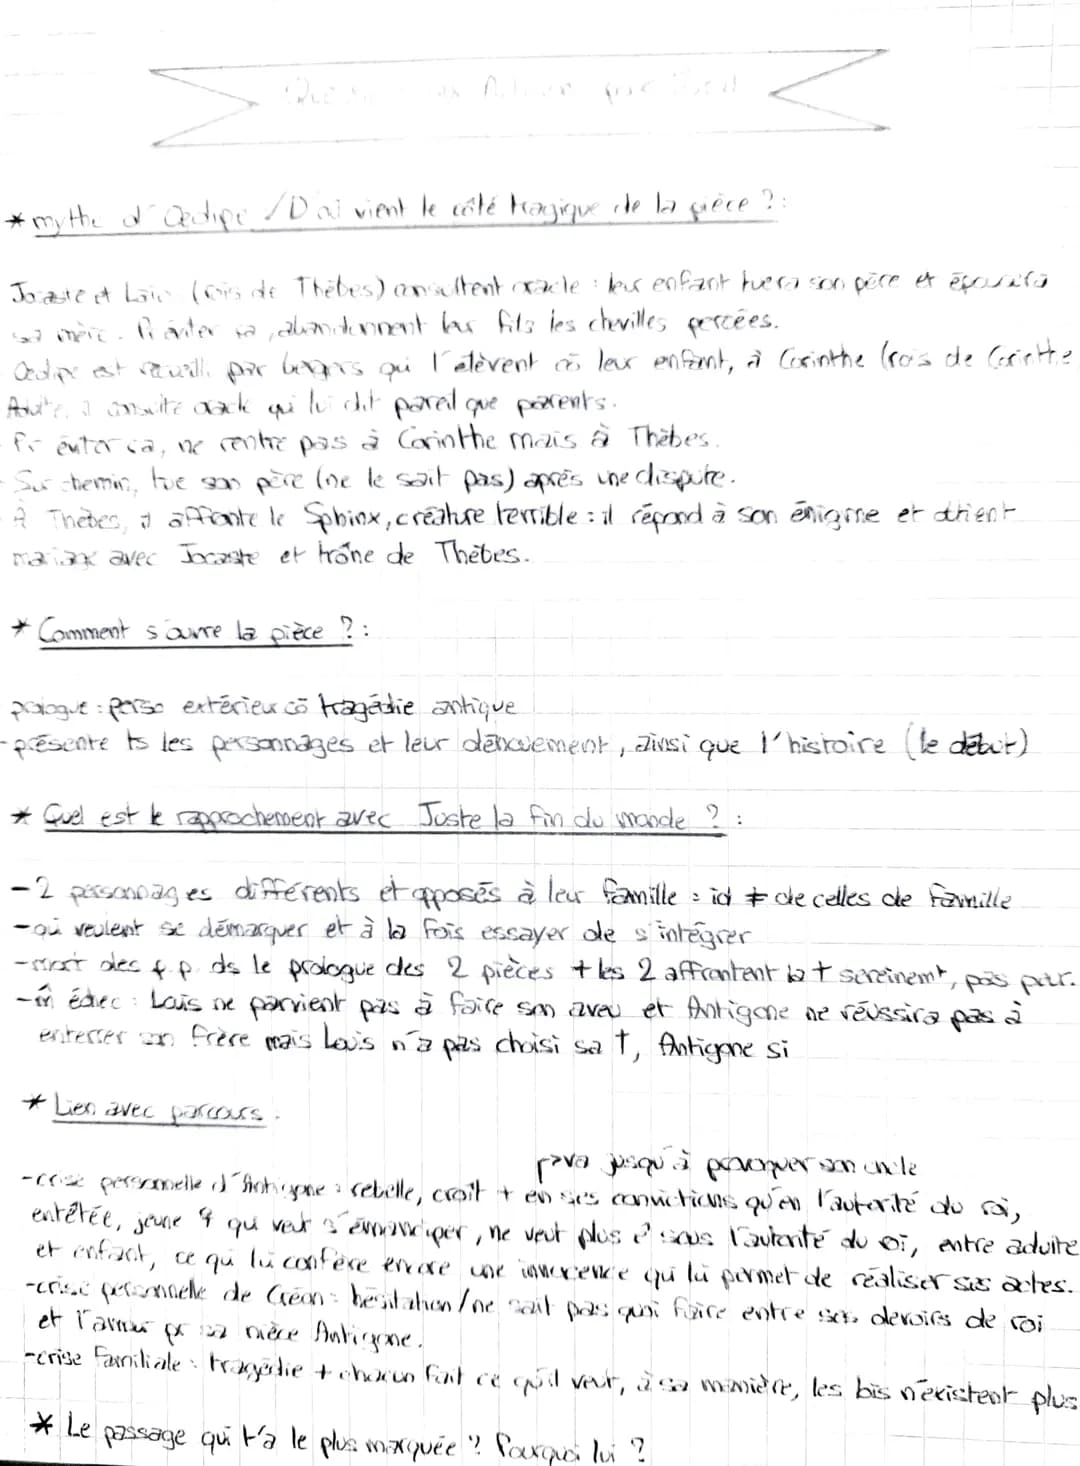 * mythe d'Œdipe / D'où vient le côté tragique de la pièce ? :
Jocaste et Laïos (rois de Thèbes) consultent oracle : leur enfant tuera son père et épousera
sa mère. Pr éviter ça, abandonnent leur fils les chevilles percées.
Œdipe est recueilli par bergers qui l'élèvent cô leur enfant, à Corinthe (rois de Corinthe
Adulte, il consulte oracle qui lui dit pareil que parents.
Pr éviter ça, ne rentre pas à Corinthe mais à Thèbes.
Sur chemin, tue son père (ne le sait pas) après une dispute.
À Thèbes, il affronte le Sphinx, créature terrible : il répond à son énigme et obtient
mariage avec Jocaste et trône de Thèbes.
* Comment s'ouvre la pièce ? :
prologue : perso extérieur cô tragédie antique
- présente ts les personnages et leur dénouement, ainsi que l'histoire (le début)
* Quel est le rapprochement avec Juste la fin du monde ? :
- 2 personnages différents et opposés à leur famille : id ≠ de celles de famille
- qui veulent se démarquer et à la fois essayer de s'intégrer
- mort des p. p. ds le prologue des 2 pièces + les 2 affrontent la † sereinemt, pas peur.
- m̂ échec : Louis ne parvient pas à faire son aveu et Antigone ne réussira pas à
enterrer son frère mais Louis n'a pas choisi sa †, Antigone si
* Lien avec parcours :
va jusqu'à provoquer son oncle
- crise personnelle d'Antigone : rebelle, croit + en ses convictions qu'en l'autorité du roi,
entêtée, jeune ♀ qui veut s'émanciper, ne veut plus ê sous l'autorité du roi, entre adulte
et enfant, ce qui lui confère encore une innocence qui lui permet de réaliser ses actes.
- crise personnelle de Créon : hésitation / ne sait pas quoi faire entre ses devoirs de roi
et l'amour pr sa nièce Antigone.
- crise familiale : tragédie + chacun fait ce qu'il veut, à sa manière, les lois n'existent plus
* Le passage qui t'a le plus marquée ? Pourquoi lui ?